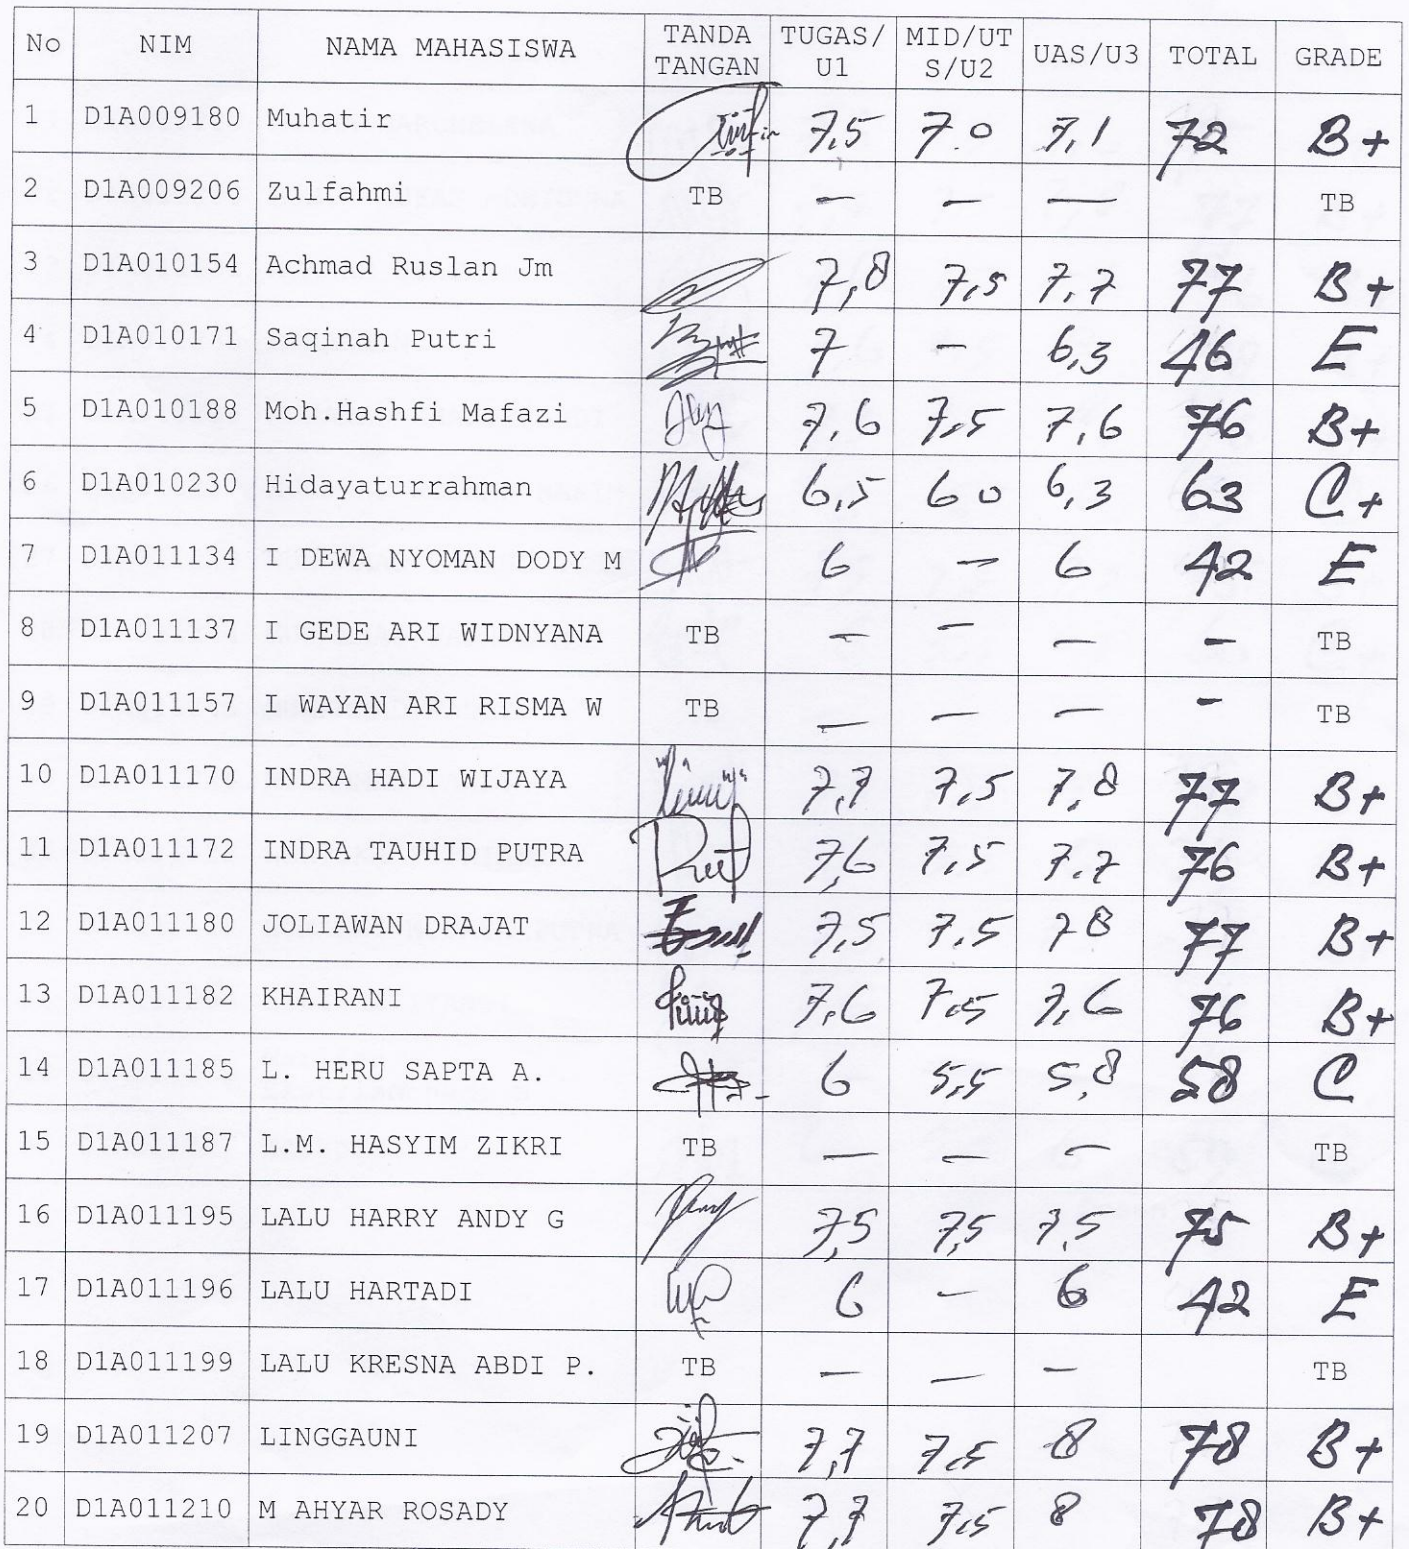 No NIM NAMA MAHASISWA TANDA TANGAN TUGAS/U1 MID/UTS/U2 UAS/U3 TOTAL GRADE
1 D1A009180 Muhatir 7,5 7.0 7,1 72 B+
2 D1A009206 Zulfahmi TB — — — TB
3 D1A010154 Achmad Ruslan Jm 7,8 7,5 7,7 77 B+
4 D1A010171 Saqinah Putri 7 — 6,3 46 E
5 D1A010188 Moh.Hashfi Mafazi 7,6 7,5 7,6 76 B+
6 D1A010230 Hidayaturrahman 6,5 60 6,3 63 C+
7 D1A011134 I DEWA NYOMAN DODY M 6 — 6 42 E
8 D1A011137 I GEDE ARI WIDNYANA TB — — — — TB
9 D1A011157 I WAYAN ARI RISMA W TB — — — — TB
10 D1A011170 INDRA HADI WIJAYA 7,7 7,5 7,8 77 B+
11 D1A011172 INDRA TAUHID PUTRA 7,6 7,5 7.7 76 B+
12 D1A011180 JOLIAWAN DRAJAT 7,5 7,5 78 77 B+
13 D1A011182 KHAIRANI 7,6 7,5 7,6 76 B+
14 D1A011185 L. HERU SAPTA A. 6 5,5 5,8 58 C
15 D1A011187 L.M. HASYIM ZIKRI TB — — — TB
16 D1A011195 LALU HARRY ANDY G 7,5 7,5 7,5 75 B+
17 D1A011196 LALU HARTADI 6 — 6 42 E
18 D1A011199 LALU KRESNA ABDI P. TB — — — TB
19 D1A011207 LINGGAUNI 7,7 7,5 8 78 B+
20 D1A011210 M AHYAR ROSADY 7,7 7,5 8 78 B+